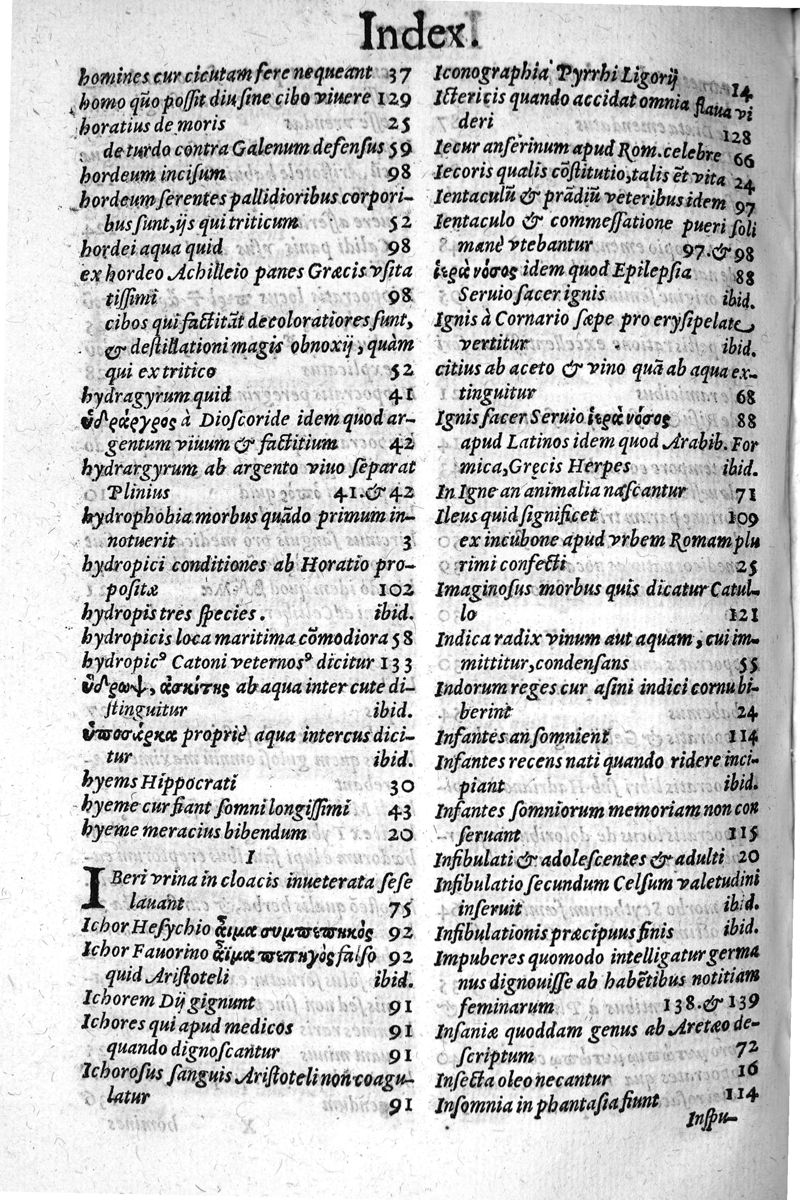 Index.
homines cur cicutam fere nequeant 37
homo quõ possit diu sine cibo viuere 129
horatius de moris 25
de turdo contra Galenum defensus 59
hordeum incisum 98
hordeum serentes pallidioribus corpori-
bus sunt, ijs qui triticum 52
hordei aqua quid 98
ex hordeo Achilleio panes Græcis vsita
tissimi 98
cibos qui factitãt decoloratiores sunt,
& destillationi magis obnoxij, quàm
qui ex tritico 52
hydragyrum quid 41
ὑδράργυρος à Dioscoride idem quod ar-
gentum viuum & factitium 42
hydrargyrum ab argento viuo separat
Plinius 41.& 42
hydrophobia morbus quãdo primum in-
notuerit 3
hydropici conditiones ab Horatio pro-
positæ 102
hydropis tres species. ibid.
hydropicis loca maritima cõmodiora 58
hydropicꝰ Catoni veternosꝰ dicitur 133
ὕδρωψ, ἀσκίτης ab aqua inter cute di-
stinguitur ibid.
ὑποσάρκα propriè aqua intercus dici-
tur ibid.
hyems Hippocrati 30
hyeme cur fiant somni longissimi 43
hyeme meracius bibendum 20
I
IBeri vrina in cloacis inueterata sese
lauant 75
Ichor Hesychio ἇιμα συμπεπηκὸς 92
Ichor Fauorino ἇϊμα πεπηγὸς falso 92
quid Aristoteli ibid.
Ichorem Dij gignunt 91
Ichores qui apud medicos 91
quando dignoscantur 91
Ichorosus sanguis Aristoteli non coagu-
latur 91
Iconographia Pyrrhi Ligorij 14
Ictericis quando accidat omnia flaua vi
deri 128
Iecur anserinum apud Rom. celebre 66
Iecoris qualis cõstitutio, talis ẽt vita 24
Ientaculũ & prãdiũ veteribus idem 97
Ientaculo & commessatione pueri soli
manè vtebantur 97.& 98
ἱερὰ νόσος idem quod Epilepsia 88
Seruio sacer ignis ibid.
Ignis à Cornario sæpe pro erysipelate
vertitur ibid.
citius ab aceto & vino quã ab aqua ex-
tinguitur 68
Ignis sacer Seruio ἱερὰ νόσος 88
apud Latinos idem quod Arabib. For
mica, Gręcis Herpes ibid.
In Igne an animalia nascantur 71
Ileus quid significet 109
ex incubone apud vrbem Romam plu
rimi confecti 25
Imaginosus morbus quis dicatur Catul-
lo 121
Indica radix vinum aut aquam, cui im-
mittitur, condensans 55
Indorum reges cur asini indici cornu bi-
berint 24
Infantes an somnient 114
Infantes recens nati quando ridere inci-
piant ibid.
Infantes somniorum memoriam non con
seruant 115
Infibulati & adolescentes & adulti 20
Infibulatio secundum Celsum valetudini
inseruit ibid.
Infibulationis præcipuus finis ibid.
Impuberes quomodo intelligatur germa
nus dignouisse ab habẽtibus notitiam
feminarum 138.& 139
Insaniæ quoddam genus ab Aretæo de-
scriptum 72
Insecta oleo necantur 16
Insomnia in phantasia fiunt 114
Inspu-